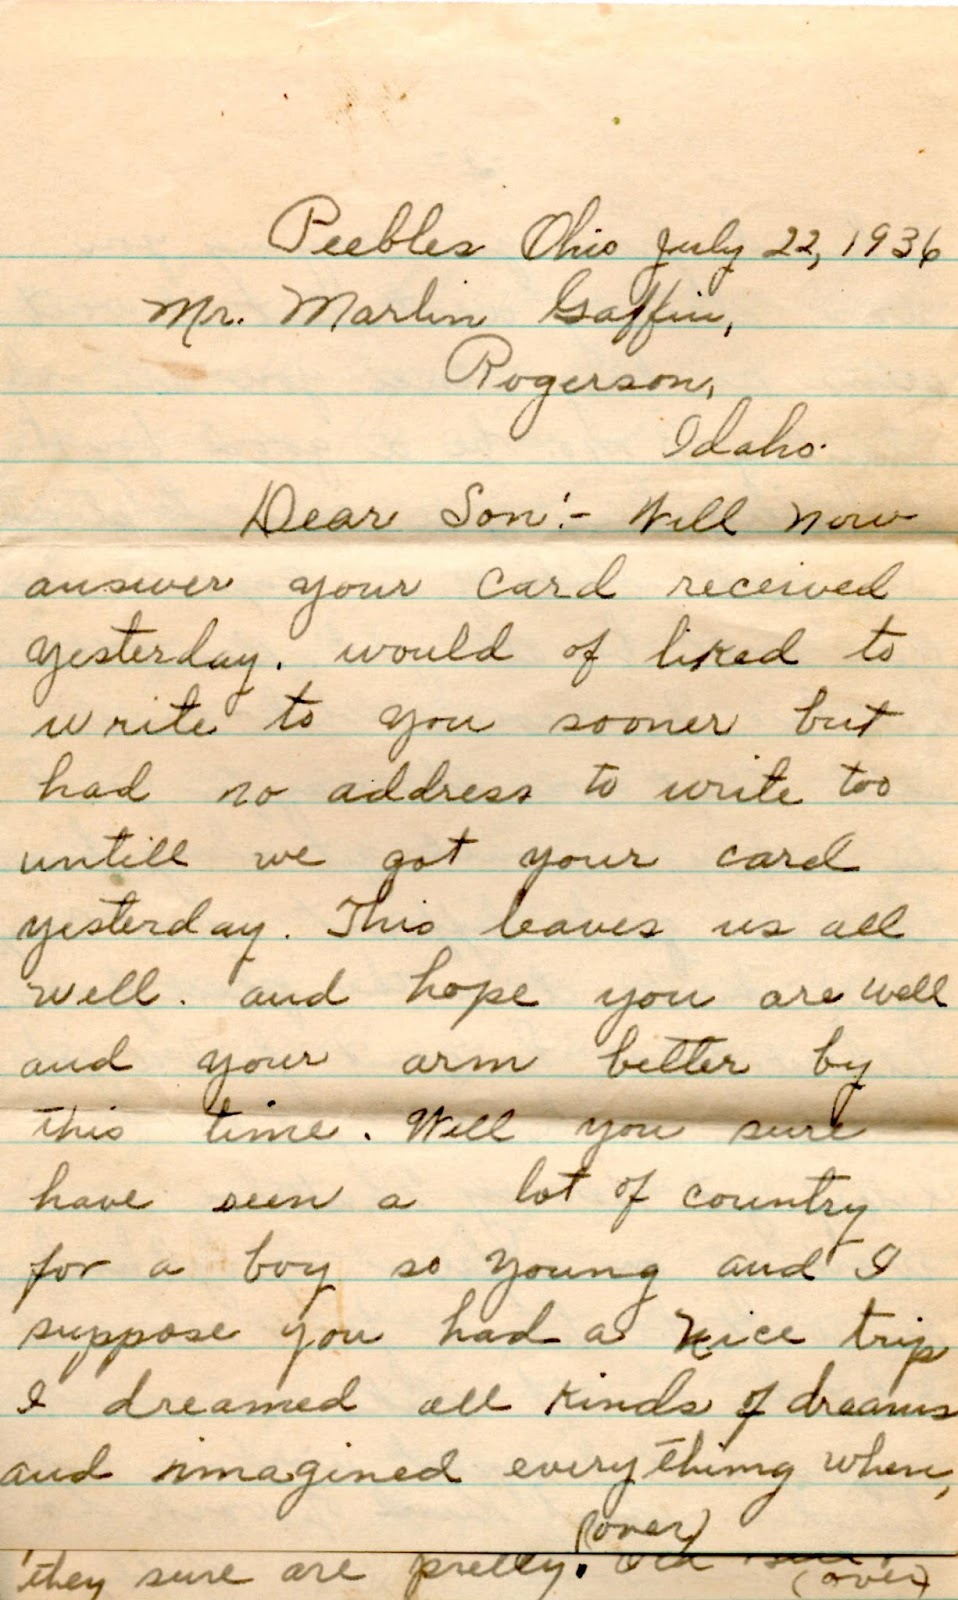 Peebles Ohio July 22, 1936
Mr. Marlin Gaffin,
Rogerson,
Idaho.
Dear Son:- Will now
answer your card received
yesterday. would of liked to
write to you sooner but
had no address to write too
untill we got your card
yesterday. This leaves us all
well. and hope you are well
and your arm better by
this time. Well you sure
have seen a lot of country
for a boy so young and I
suppose you had a nice trip
I dreamed all kinds of dreams
and immagined everything when,
(over)
they sure are pretty.
(over)